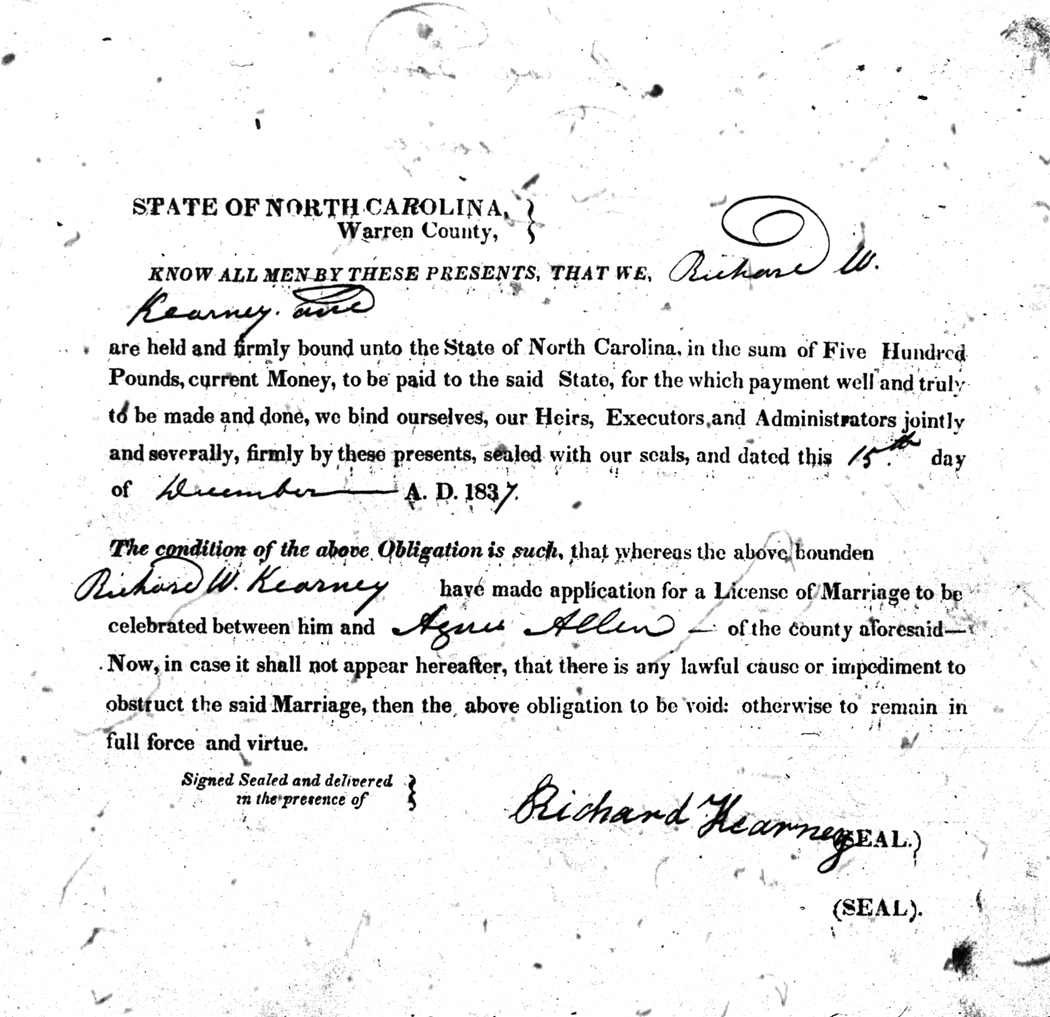 STATE OF NORTH CAROLINA,
Warren County,
KNOW ALL MEN BY THESE PRESENTS, THAT WE, Richard W.
Kearney. and
are held and firmly bound unto the State of North Carolina, in the sum of Five Hundred
Pounds, current Money, to be paid to the said State, for the which payment well and truly
to be made and done, we bind ourselves, our Heirs, Executors, and Administrators jointly
and severally, firmly by these presents, sealed with our seals, and dated this 15.th day
of December — A. D. 1837.
The condition of the above Obligation is such, that whereas the above bounden
Richard W. Kearney have made application for a License of Marriage to be
celebrated between him and Agnes Allen — of the county aforesaid—
Now, in case it shall not appear hereafter, that there is any lawful cause or impediment to
obstruct the said Marriage, then the above obligation to be void: otherwise to remain in
full force and virtue.
Signed Sealed and delivered
in the presence of
Richard Kearney (SEAL.)
(SEAL).